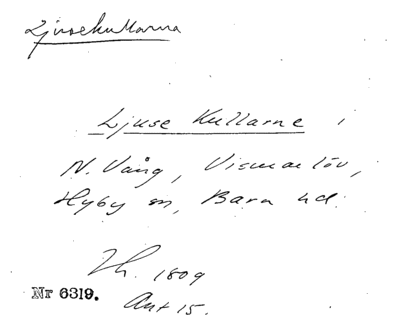 Ljusekullarna
Ljuse Kullarne i
N. Vång, Vismarlöv,
Hyby sn, Bara hd.
Lh. 1809
Nr 6319.
Akt 15.